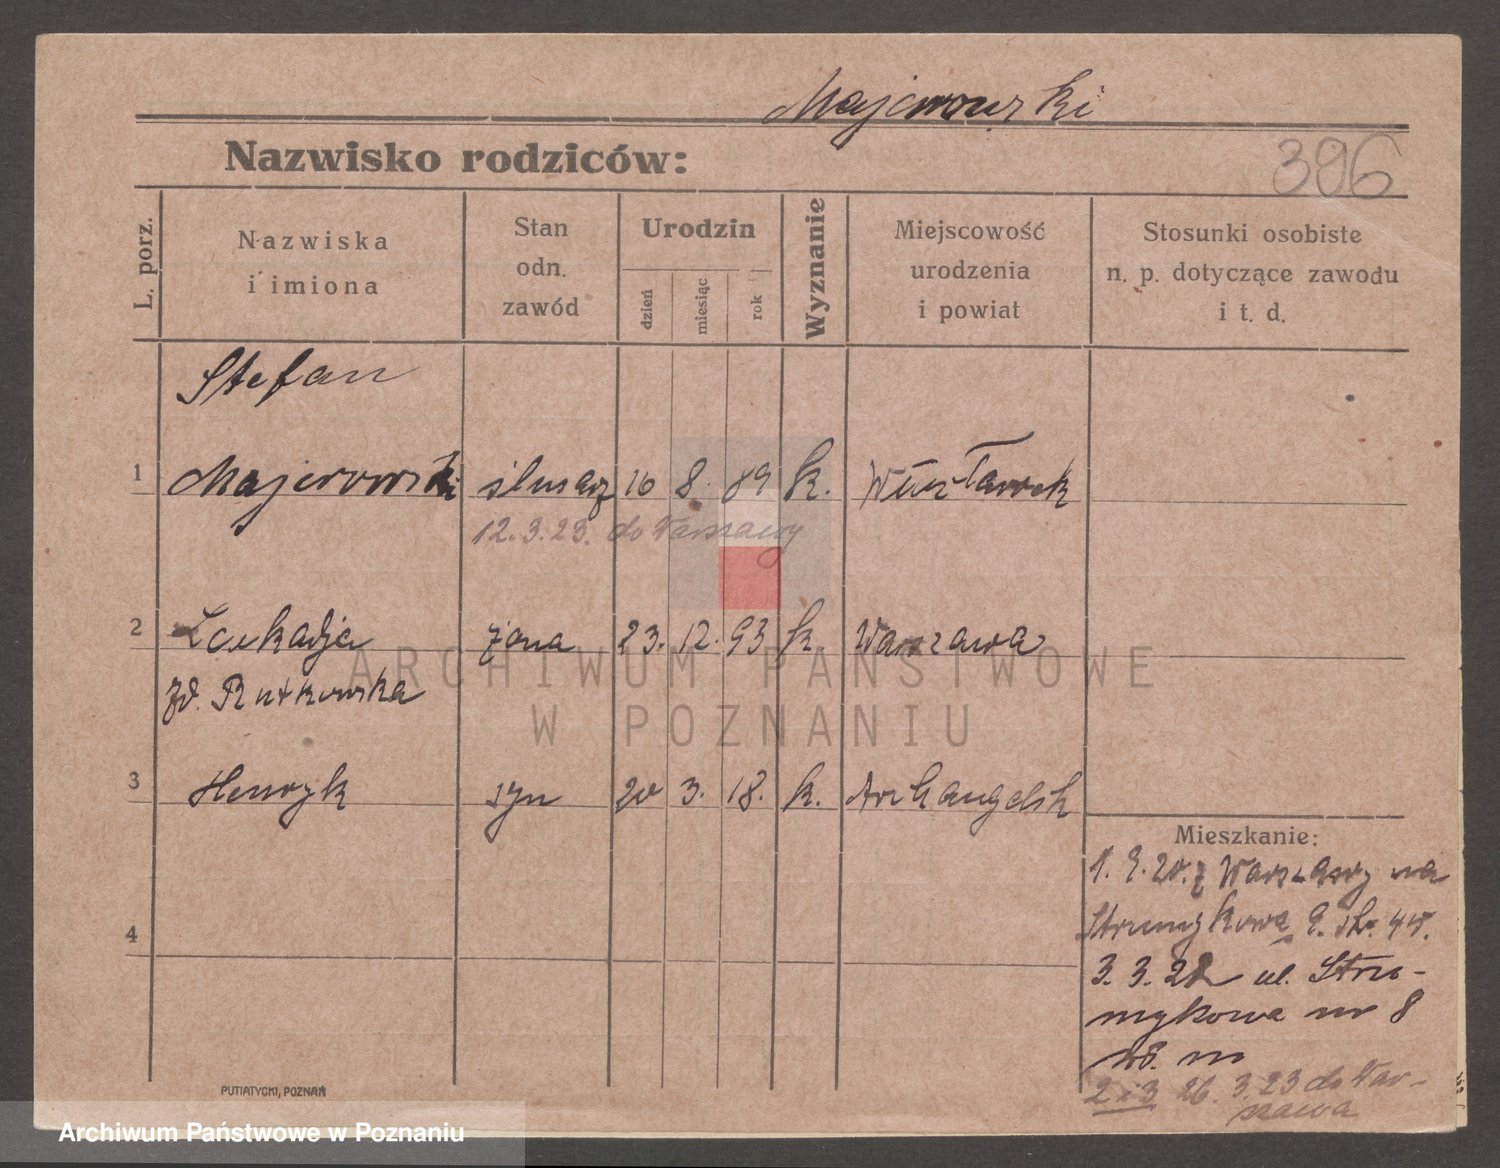 Majerowski
Nazwisko rodziców:
396
L. porz.
Nazwiska
i imiona
Stan
odn.
zawód
Urodzin
dzień
miesiąc
rok
Wyznanie
Miejscowość
urodzenia
i powiat
Stosunki osobiste
n. p. dotyczące zawodu
i t. d.
Stefan
1 Majerowski ślusarz 16 8. 89 k. Włocławek
12.3.23. do Warszawy
2 Leukadja żona 23. 12. 93 k. Warszawa
zd. Rutkowska
3 Henryk syn 20 3. 18. k. Archangelsk
4
Mieszkanie:
1. 9. 20. z Warszawy na
Strumykowa 9. 
3. 3. 22 ul. Stru-
mykowa nr 8
2 i 3 26. 3. 23 do War-
szawa
PUTIATYCKI, POZNAŃ
ARCHIWUM PAŃSTWOWE
W POZNANIU
Archiwum Państwowe w Poznaniu